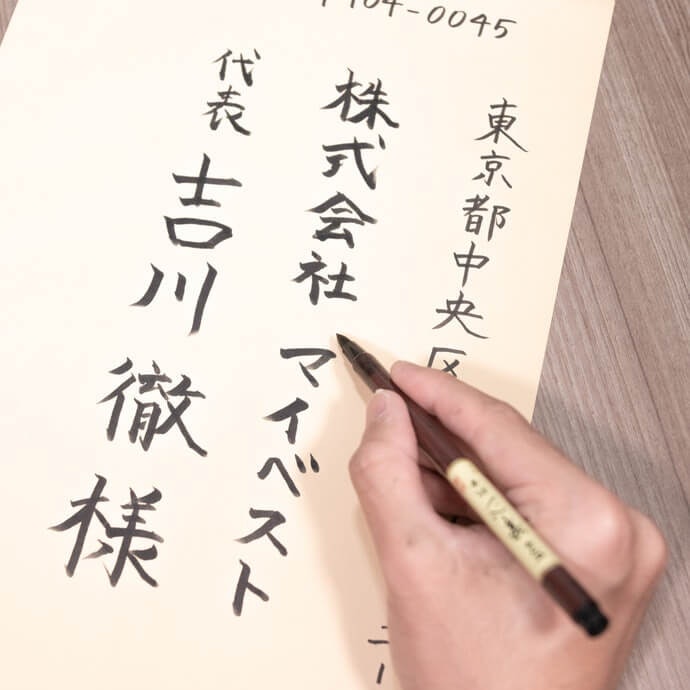 104-0045
東京都中央区
株式会社 マイベスト
代表 吉川 徹 様